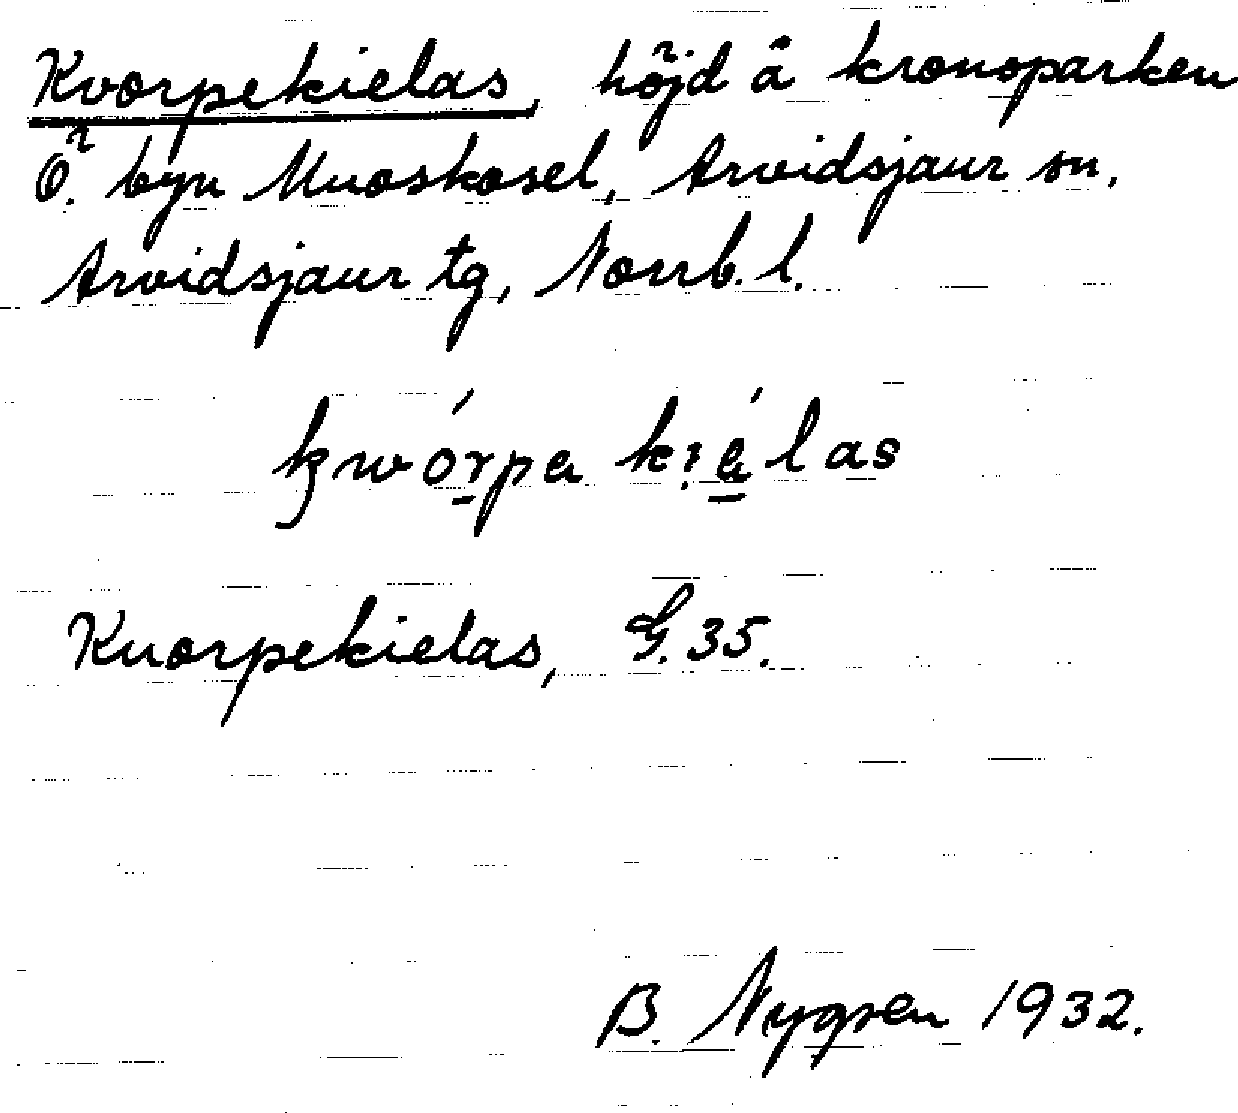 Kvorpekielas, höjd å kronoparken
Ö. byn Muoskosel, Arvidsjaur sn,
Arvidsjaur tg, Norrb. l.
Kuorpekielas, G. 35.
B. Nygren 1932.